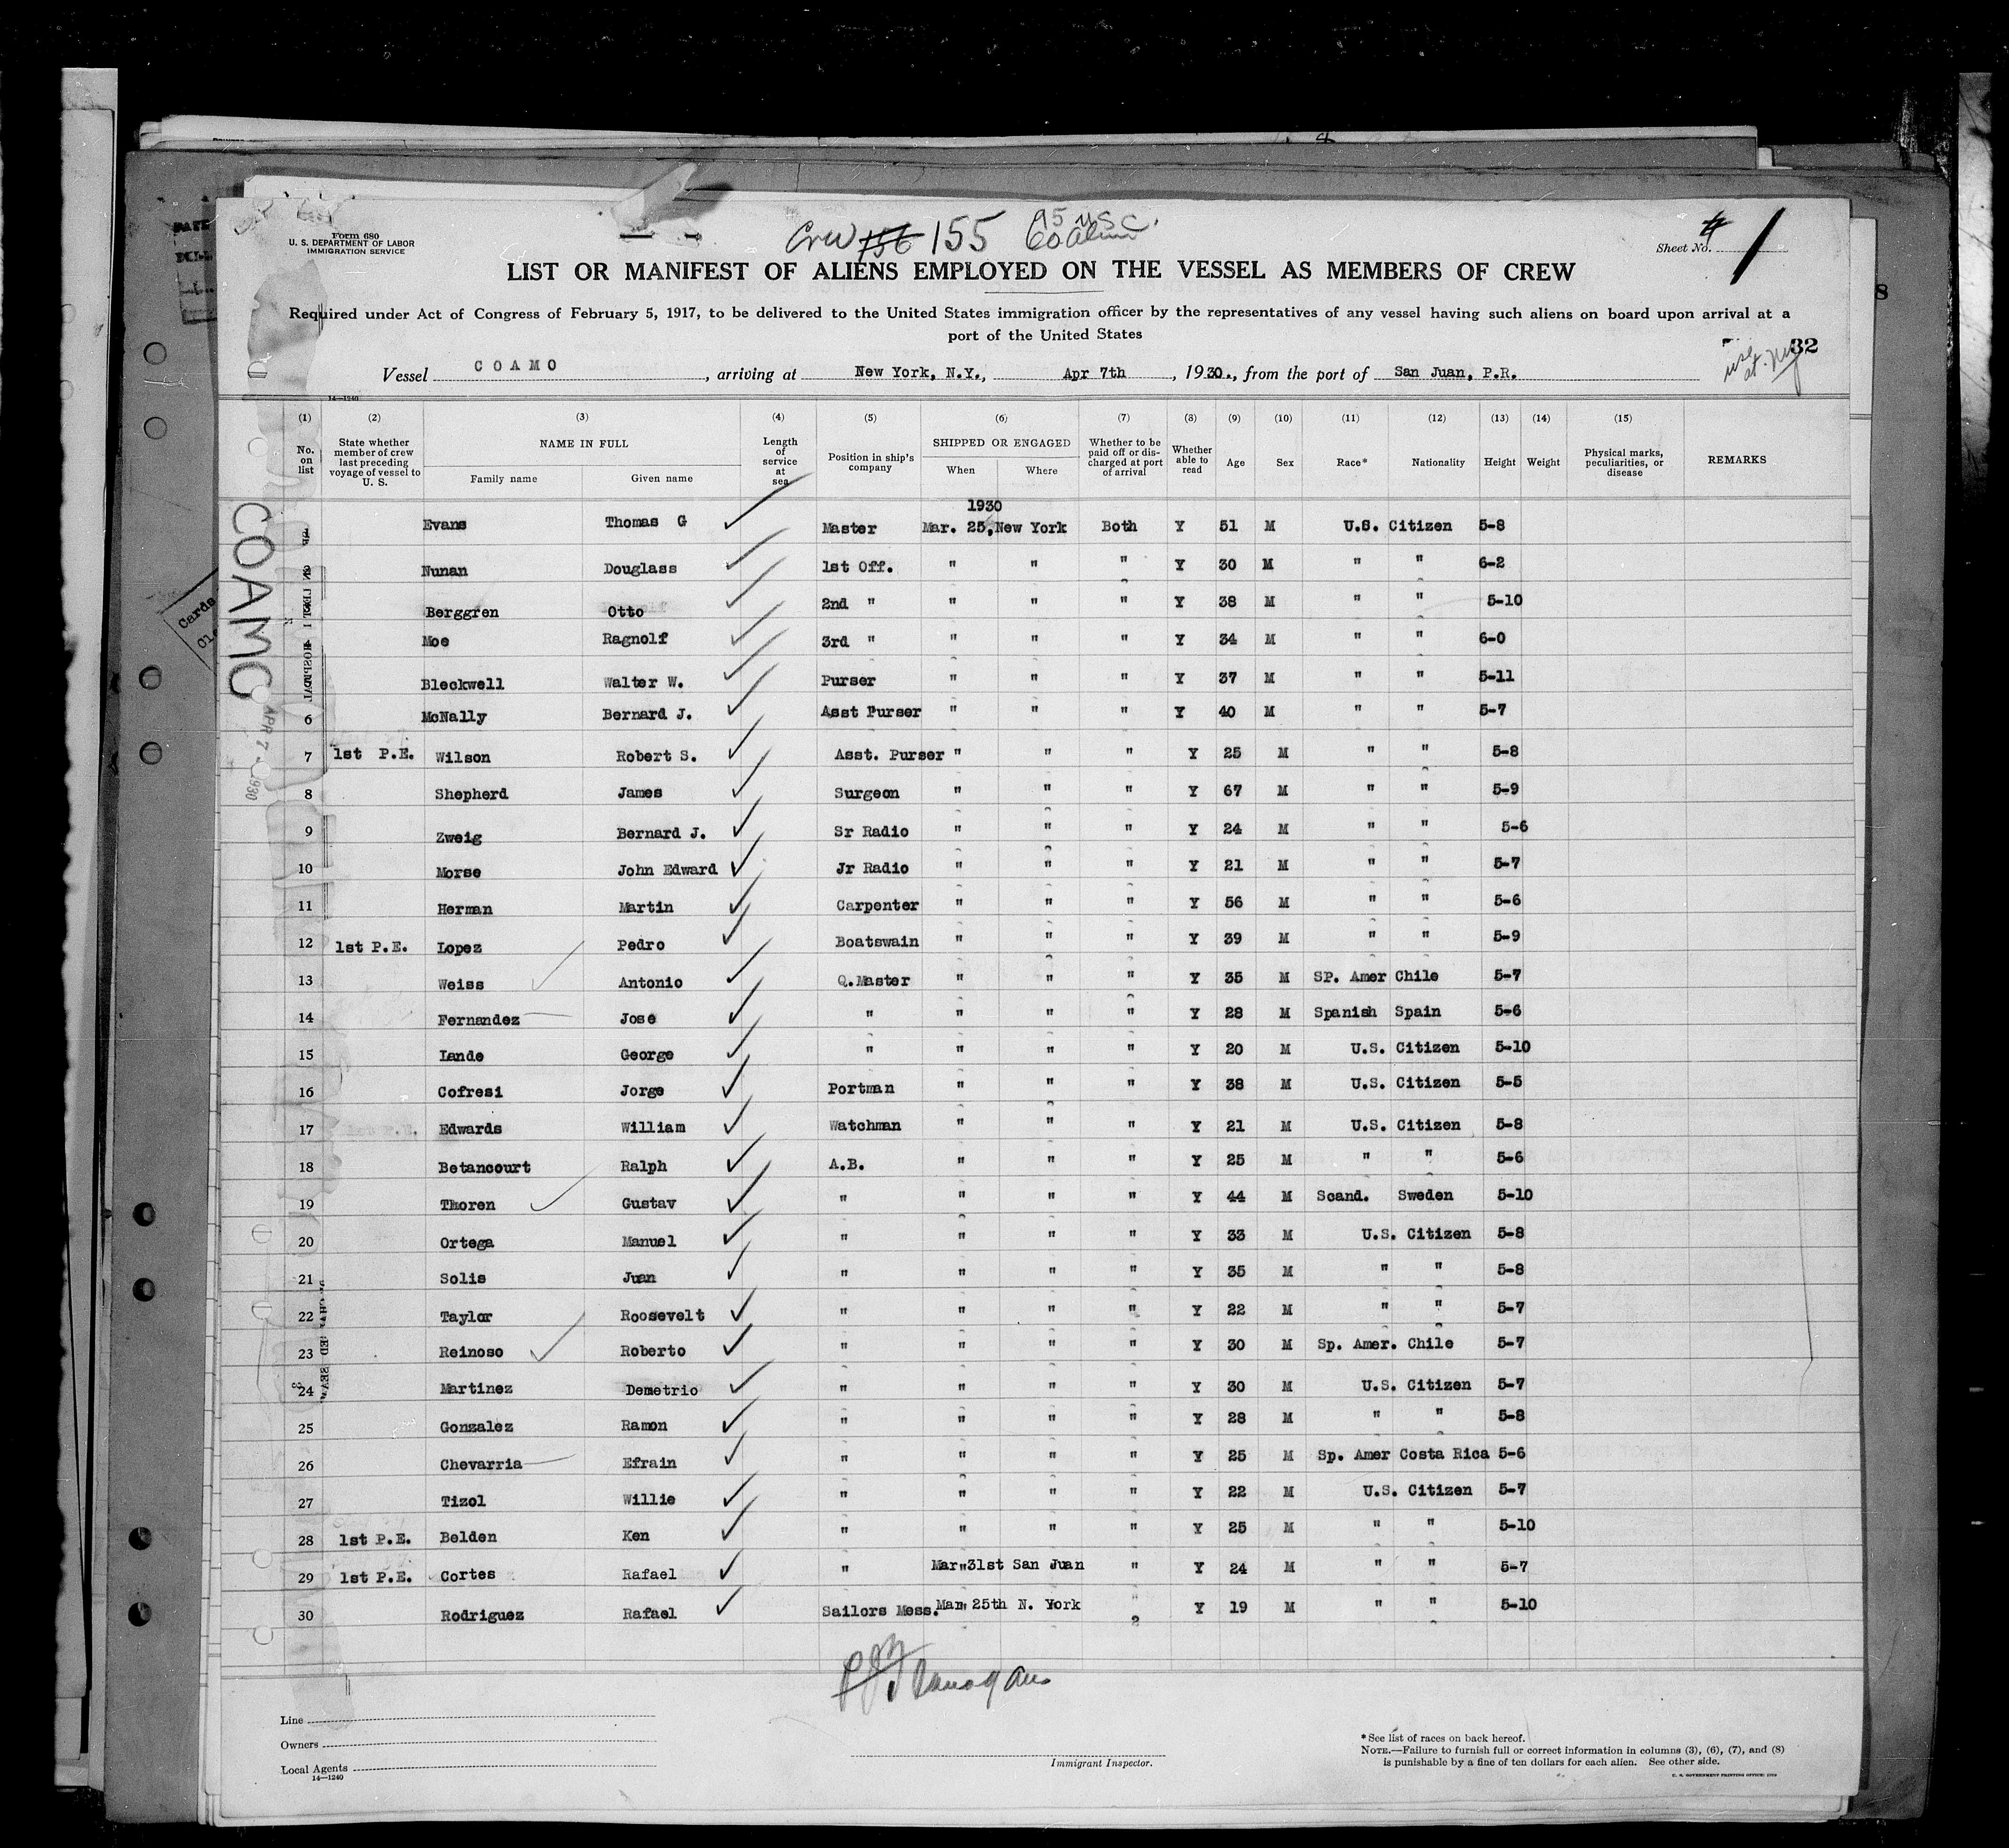 Form 680
U. S. DEPARTMENT OF LABOR
IMMIGRATION SERVICE
Crew 156 155 95 U S C.
60 alien
Sheet No. 4 1
LIST OR MANIFEST OF ALIENS EMPLOYED ON THE VESSEL AS MEMBERS OF CREW
Required under Act of Congress of February 5, 1917, to be delivered to the United States immigration officer by the representatives of any vessel having such aliens on board upon arrival at a
port of the United States
32
use at NY
Vessel COAMO, arriving at New York, N.Y., Apr 7th, 1930., from the port of San Juan, P.R.
14—1240
(1) (2) (3) (4) (5) (6) (7) (8) (9) (10) (11) (12) (13) (14) (15)
No. on list State whether member of crew last preceding voyage of vessel to U. S. NAME IN FULL Family name Given name Length of service at sea Position in ship's company SHIPPED OR ENGAGED When Where Whether to be paid off or discharged at port of arrival Whether able to read Age Sex Race* Nationality Height Weight Physical marks, peculiarities, or disease REMARKS
1930
Evans Thomas G Master Mar. 25, New York Both Y 51 M U.S. Citizen 5-8
Nunan Douglass 1st Off. " " " Y 30 M " " 6-2
Berggren Otto 2nd " " " " Y 38 M " " 5-10
Moe Ragnolf 3rd " " " " Y 34 M " " 6-0
Bleckwell Walter W. Purser " " " Y 37 M " " 5-11
6 McNally Bernard J. Asst Purser " " " Y 40 M " " 5-7
7 1st P.E. Wilson Robert S. Asst. Purser " " " Y 25 M " " 5-8
8 Shepherd James Surgeon " " " Y 67 M " " 5-9
9 Zweig Bernard J. Sr Radio " " " Y 24 M " " 5-6
10 Morse John Edward Jr Radio " " " Y 21 M " " 5-7
11 Herman Martin Carpenter " " " Y 56 M " " 5-6
12 1st P.E. Lopez Pedro Boatswain " " " Y 39 M " " 5-9
13 Weiss Antonio Q.Master " " " Y 35 M SP. Amer Chile 5-7
14 Fernandez Jose " " " " Y 28 M Spanish Spain 5-6
15 Lande George " " " " Y 20 M U.S. Citizen 5-10
16 Cofresi Jorge Portman " " " Y 38 M U.S. Citizen 5-5
17 1st P.E. Edwards William Watchman " " " Y 21 M U.S. Citizen 5-8
18 Betancourt Ralph A.B. " " " Y 25 M " " 5-6
19 Thoren Gustav " " " " Y 44 M Scand. Sweden 5-10
20 Ortega Manuel " " " " Y 33 M U.S. Citizen 5-8
21 Solis Juan " " " " Y 35 M " " 5-8
22 Taylor Roosevelt " " " " Y 22 M " " 5-7
23 Reinoso Roberto " " " " Y 30 M Sp. Amer. Chile 5-7
24 Martinez Demetrio " " " " Y 30 M U.S. Citizen 5-7
25 Gonzalez Ramon " " " " Y 28 M " " 5-8
26 Chevarria Efrain " " " " Y 25 M Sp. Amer Costa Rica 5-6
27 Tizol Willie " " " " Y 22 M U.S. Citizen 5-7
28 1st P.E. Belden Ken " " " " Y 25 M " " 5-10
29 1st P.E. Cortes Rafael " Mar 31st San Juan " Y 24 M " " 5-7
30 Rodriguez Rafael Sailors Mess. Mar 25th N. York " Y 19 M " " 5-10
COAMO
APR 7 - 1930
Cards
Line
Owners
Local Agents
14—1240
Immigrant Inspector.
*See list of races on back hereof.
NOTE.—Failure to furnish full or correct information in columns (3), (6), (7), and (8)
is punishable by a fine of ten dollars for each alien. See other side.
U. S. GOVERNMENT PRINTING OFFICE